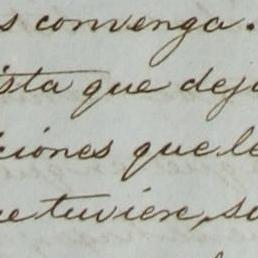 s convenga.
ista que dejo
ciones que le
se tuviere, su